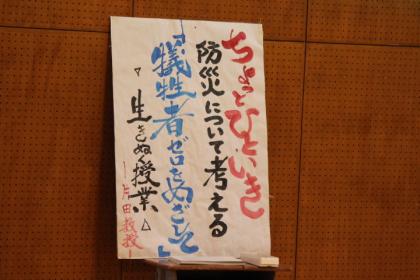 ちょっとひといき
防災について考える
「犠牲者ゼロをめざして」
△生きぬく授業△
－片田教授－